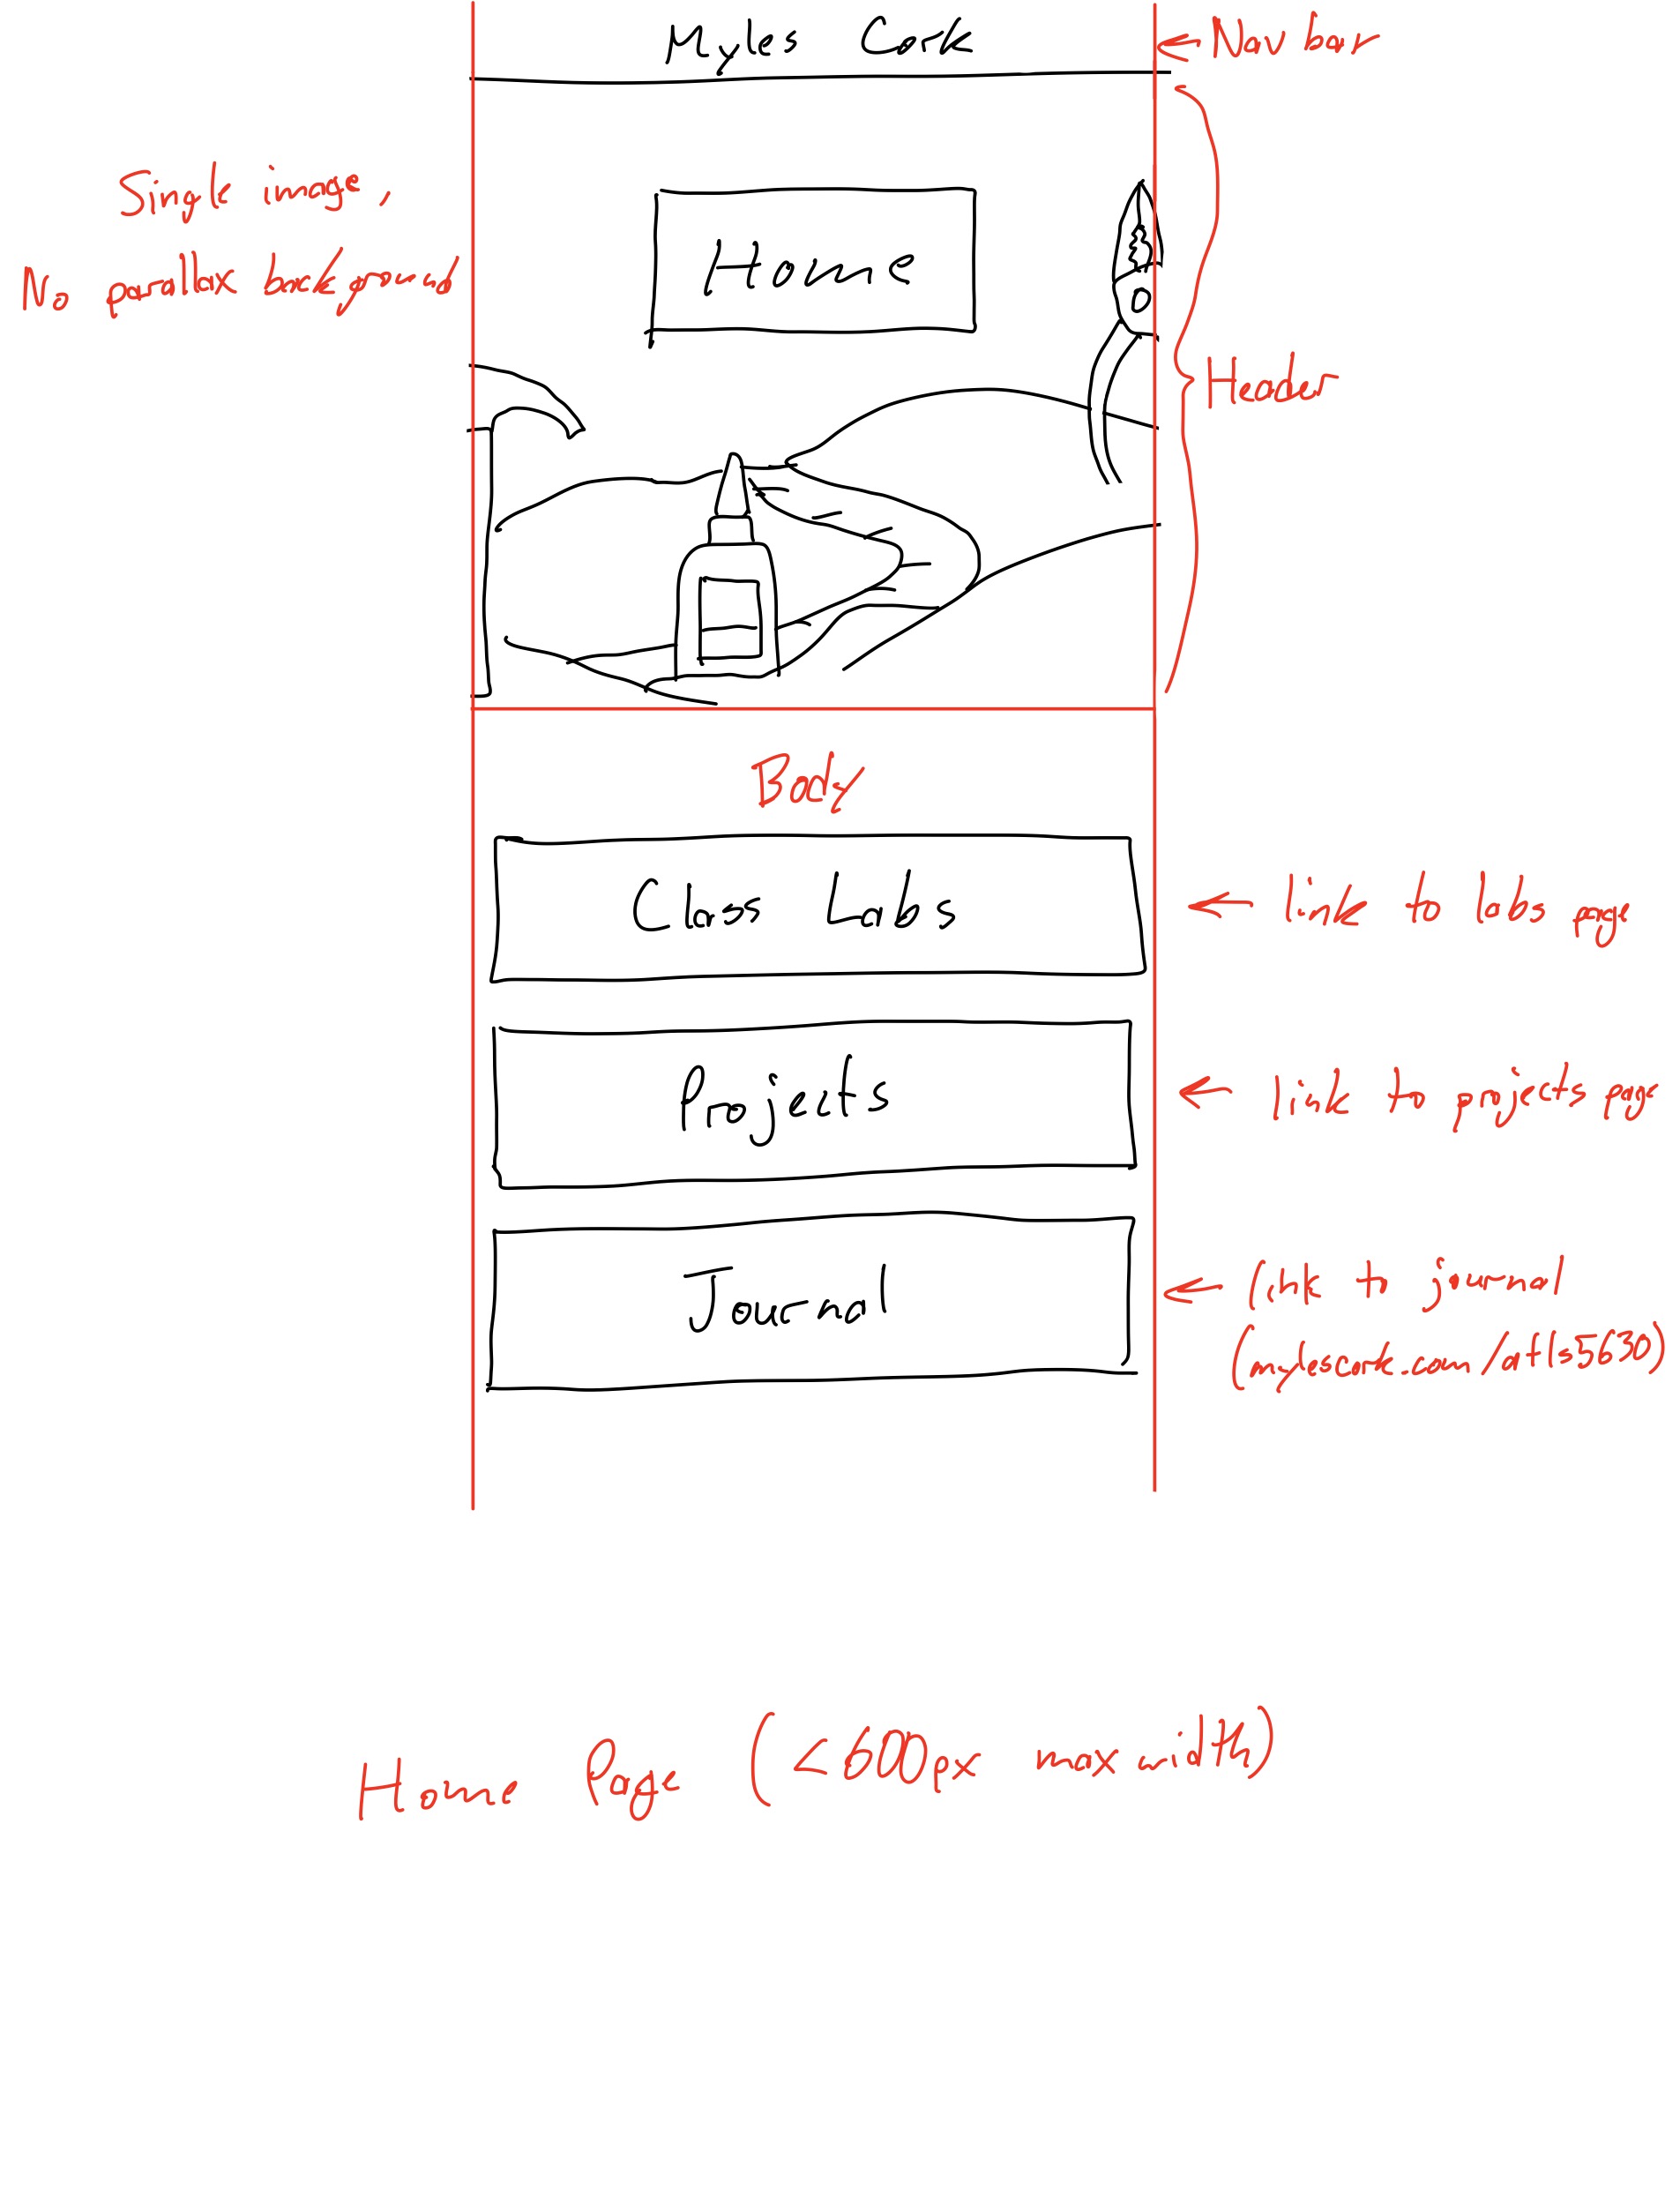 Myles Cork
← Nav bar
Single image,
No parallax background
Home
Header
Body
Class Labs
← link to labs page
Projects
← link to projects page
Journal
← link to journal
(mylescork.com/atls5630)
Home Page (<600px max width)